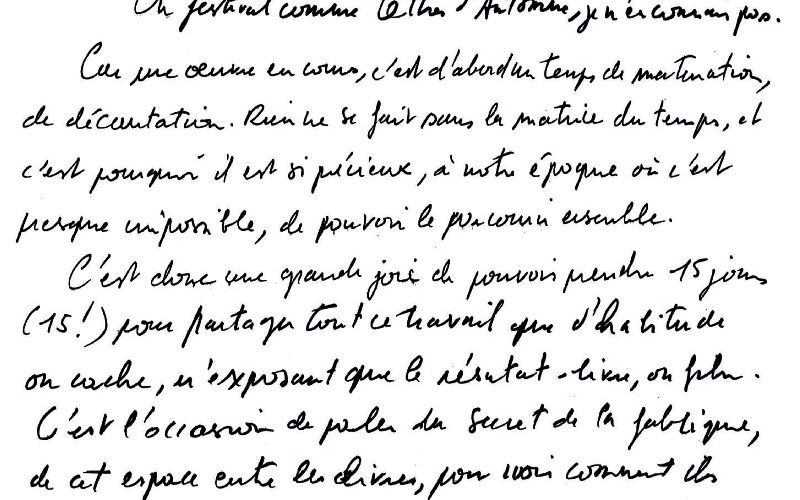 Un festival comme Lettres d'Automne, je n'en connais pas.
Car une œuvre en cours, c'est d'abord un temps de maturation,
de décantation. Rien ne se fait sans la matrice du temps, et
c'est pourquoi il est si précieux, à notre époque où c'est
presque impossible, de pouvoir le parcourir ensemble.
C'est donc une grande joie de pouvoir prendre 15 jours
(15!) pour partager tout ce travail que d'habitude
on cache, n'exposant que le résultat - livre, ou film.
C'est l'occasion de parler du secret de la fabrique,
de cet espace entre les livres, pour voir comment ils